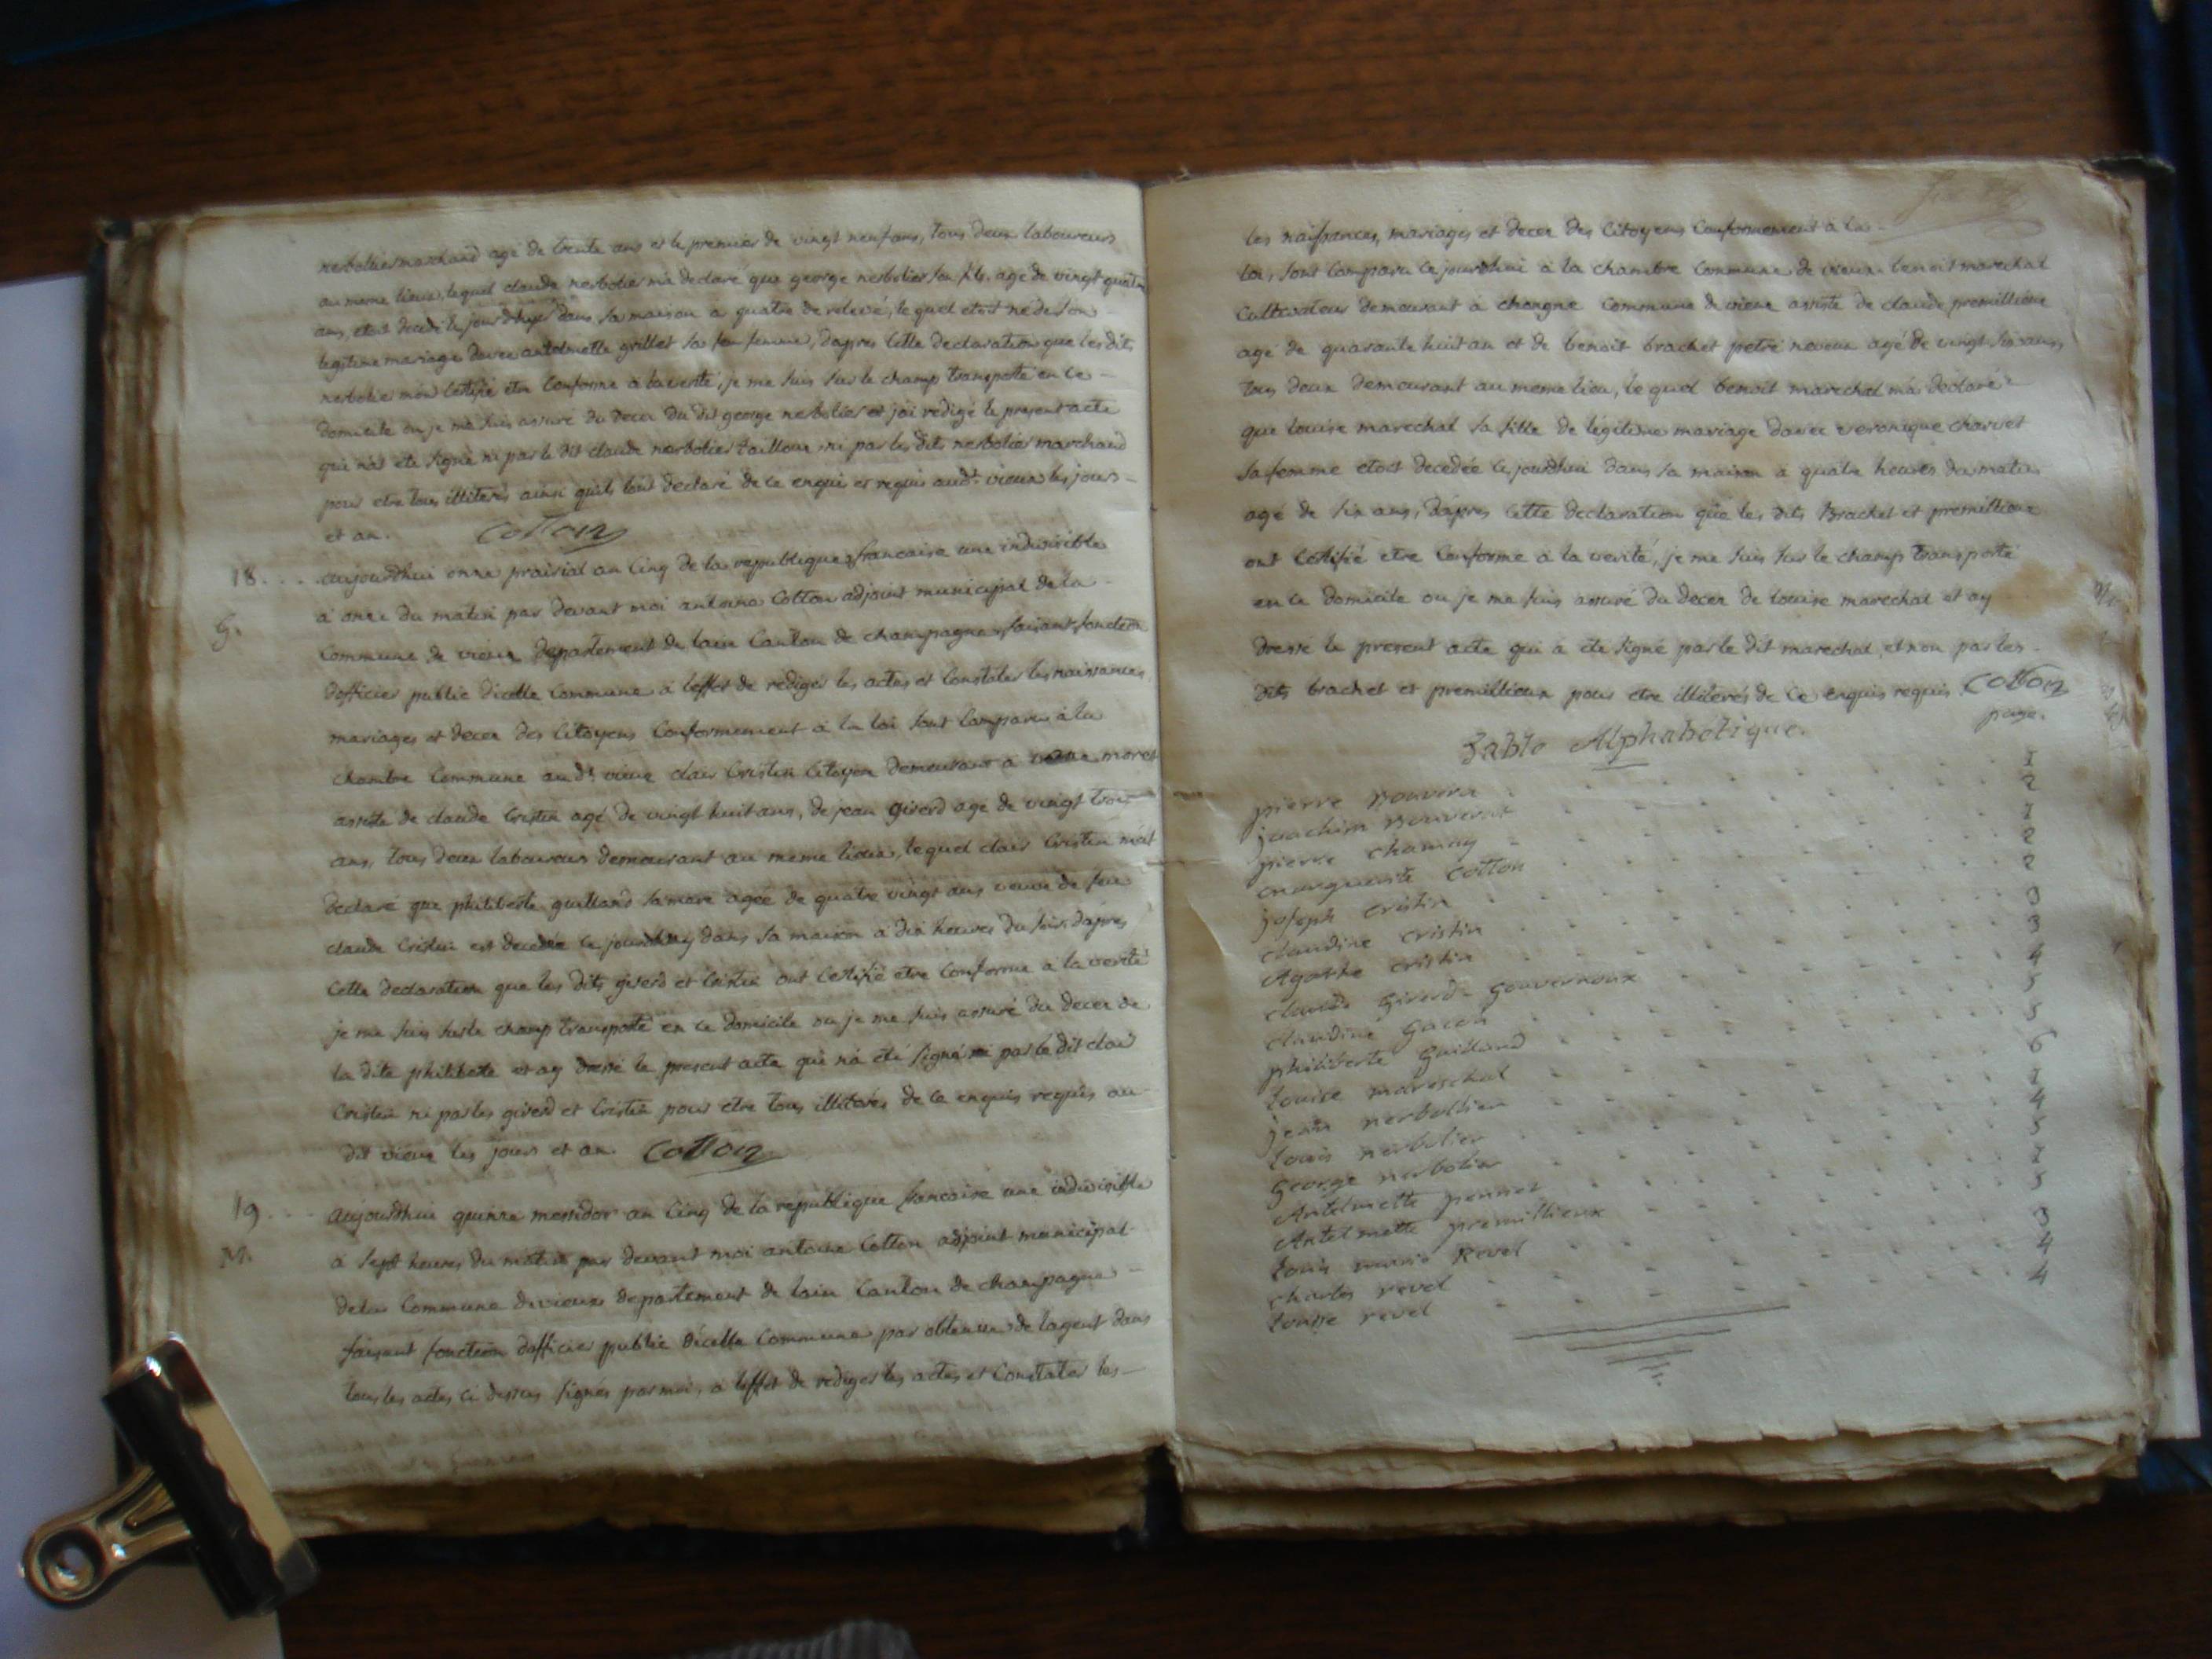 nerbolier marchand agé de trente ans et le premier de vingt neuf ans, tous deux laboureurs
au meme lieux, lequel claude nerbolier m'a declaré que george nerbolier son fils agé de vingt quatre
ans, etoit decedé le jour dhyer dans sa maison a quatre de relevé, le quel etoit né de son
legitime mariage davec antelmette grillet sa feu femme, dapres cette declaration que les dits
nerbolier mon certifié etre conforme à la verité, je me suis sur le champ transporté en ce
domicile ou je me suis assuré du decer du dit george nerbolier et jai redigé le present acte
qui n'at eté signé ni par le dit claude nerbolier tailleur ni par les dits nerbolier marchand
pour etre tous illiterés ainsi quils lont declaré de ce enquis et requis aud.t vieux les jours
et an. Cotton
18 .... aujourdhui onze prairial an cinq de la republique francaise une indivisible
à onze du matin par devant moi antoine Cotton adjoint municipal de la
G. commune de vieux departement de lain canton de champagne, faisant fonction
dofficier public dicelle commune a leffet de rediger les actes et constater les naissances,
mariages et decer des citoyens conformement à la loi sont comparu à la
chambre commune au dt vieux clair Cristin citoyen demeurant a moret
assisté de claude Cristin agé de vingt huit ans, de jean giverd agé de vingt trois
ans, tous deux laboureur demeurant au meme lieux, lequel clair Cristin m'at
declaré que philiberte guilland sa mere agée de quatre vingt ans veuve de feu
claude Cristin est decedée ce jourdhuy dans sa maison a dix heures du soir, dapres
cette declaration que les dits giverd et Cristin ont certifié etre conforme à la verité
je me suis sur le champ transporté en ce domicile ou je me suis assuré du decer de
la dite philiberte et ay dressé le present acte qui n'a eté signé ni par le dit clair
Cristin ni par les giverd et Cristin pour etre tous illiterés de ce enquis requis au
dit vieux les jours et an. Cotton
19 .... aujourdhui quinze messidor an cinq de la republique francaise une indivisible
M. a sept heures du matin par devant moi antoine Cotton adjoint municipal
de la commune de vieux departement de lain canton de champagne
faisant fonction dofficier public dicelle commune par de lagent dans
tous les actes ci dessus signés par moi, a leffet de rediger les actes et constater les
les naissances, mariages et decer des citoyens conformement à la
loi, sont comparu ce jourdhui à la chambre commune de vieux benoit marechal
cultivateur demeurant à chongne commune de vieux assisté de claude premillieux
agé de quarante huit an et de benoit brachet petre neveux agé de vingt six ans,
tous deux demeurant au meme lieu, le quel benoit marechal m'a declaré
que louise marechal sa fille de légitime mariage davec veronique charvet
sa femme etoit decedée ce jourdhui dans sa maison a quatre heures du matin
agé de six ans, dapres cette declaration que les dits Brachet et premillieux
ont certifié etre conforme à la verité, je me suis sur le champ transporté
en ce domicile ou je me suis assuré du decer de louise marechal et ay
dressé le present acte qui a eté signé par le dit marechal, et non par les
dits brachet et premillieux pour etre illiterés de ce enquis requis Cotton
Table Alphabétique. page.
pierre Bouvera 1
joachim Bouverat 2
pierre chamoy 1
marguerite Cotton 2
joseph cristin 2
claudine cristin 3
Agathe cristin 3
claude giverd-gouvernoux 4
claudine gacon 5
philiberte guilland 5
Louise mareschal 6
jean nerbollier 1
Louis nerbolier 4
George nerbolier 5
Antelmette ponnet 1
Antelmette premillieux 5
Louis marie Revel 3
charles revel 4
Louise revel 4